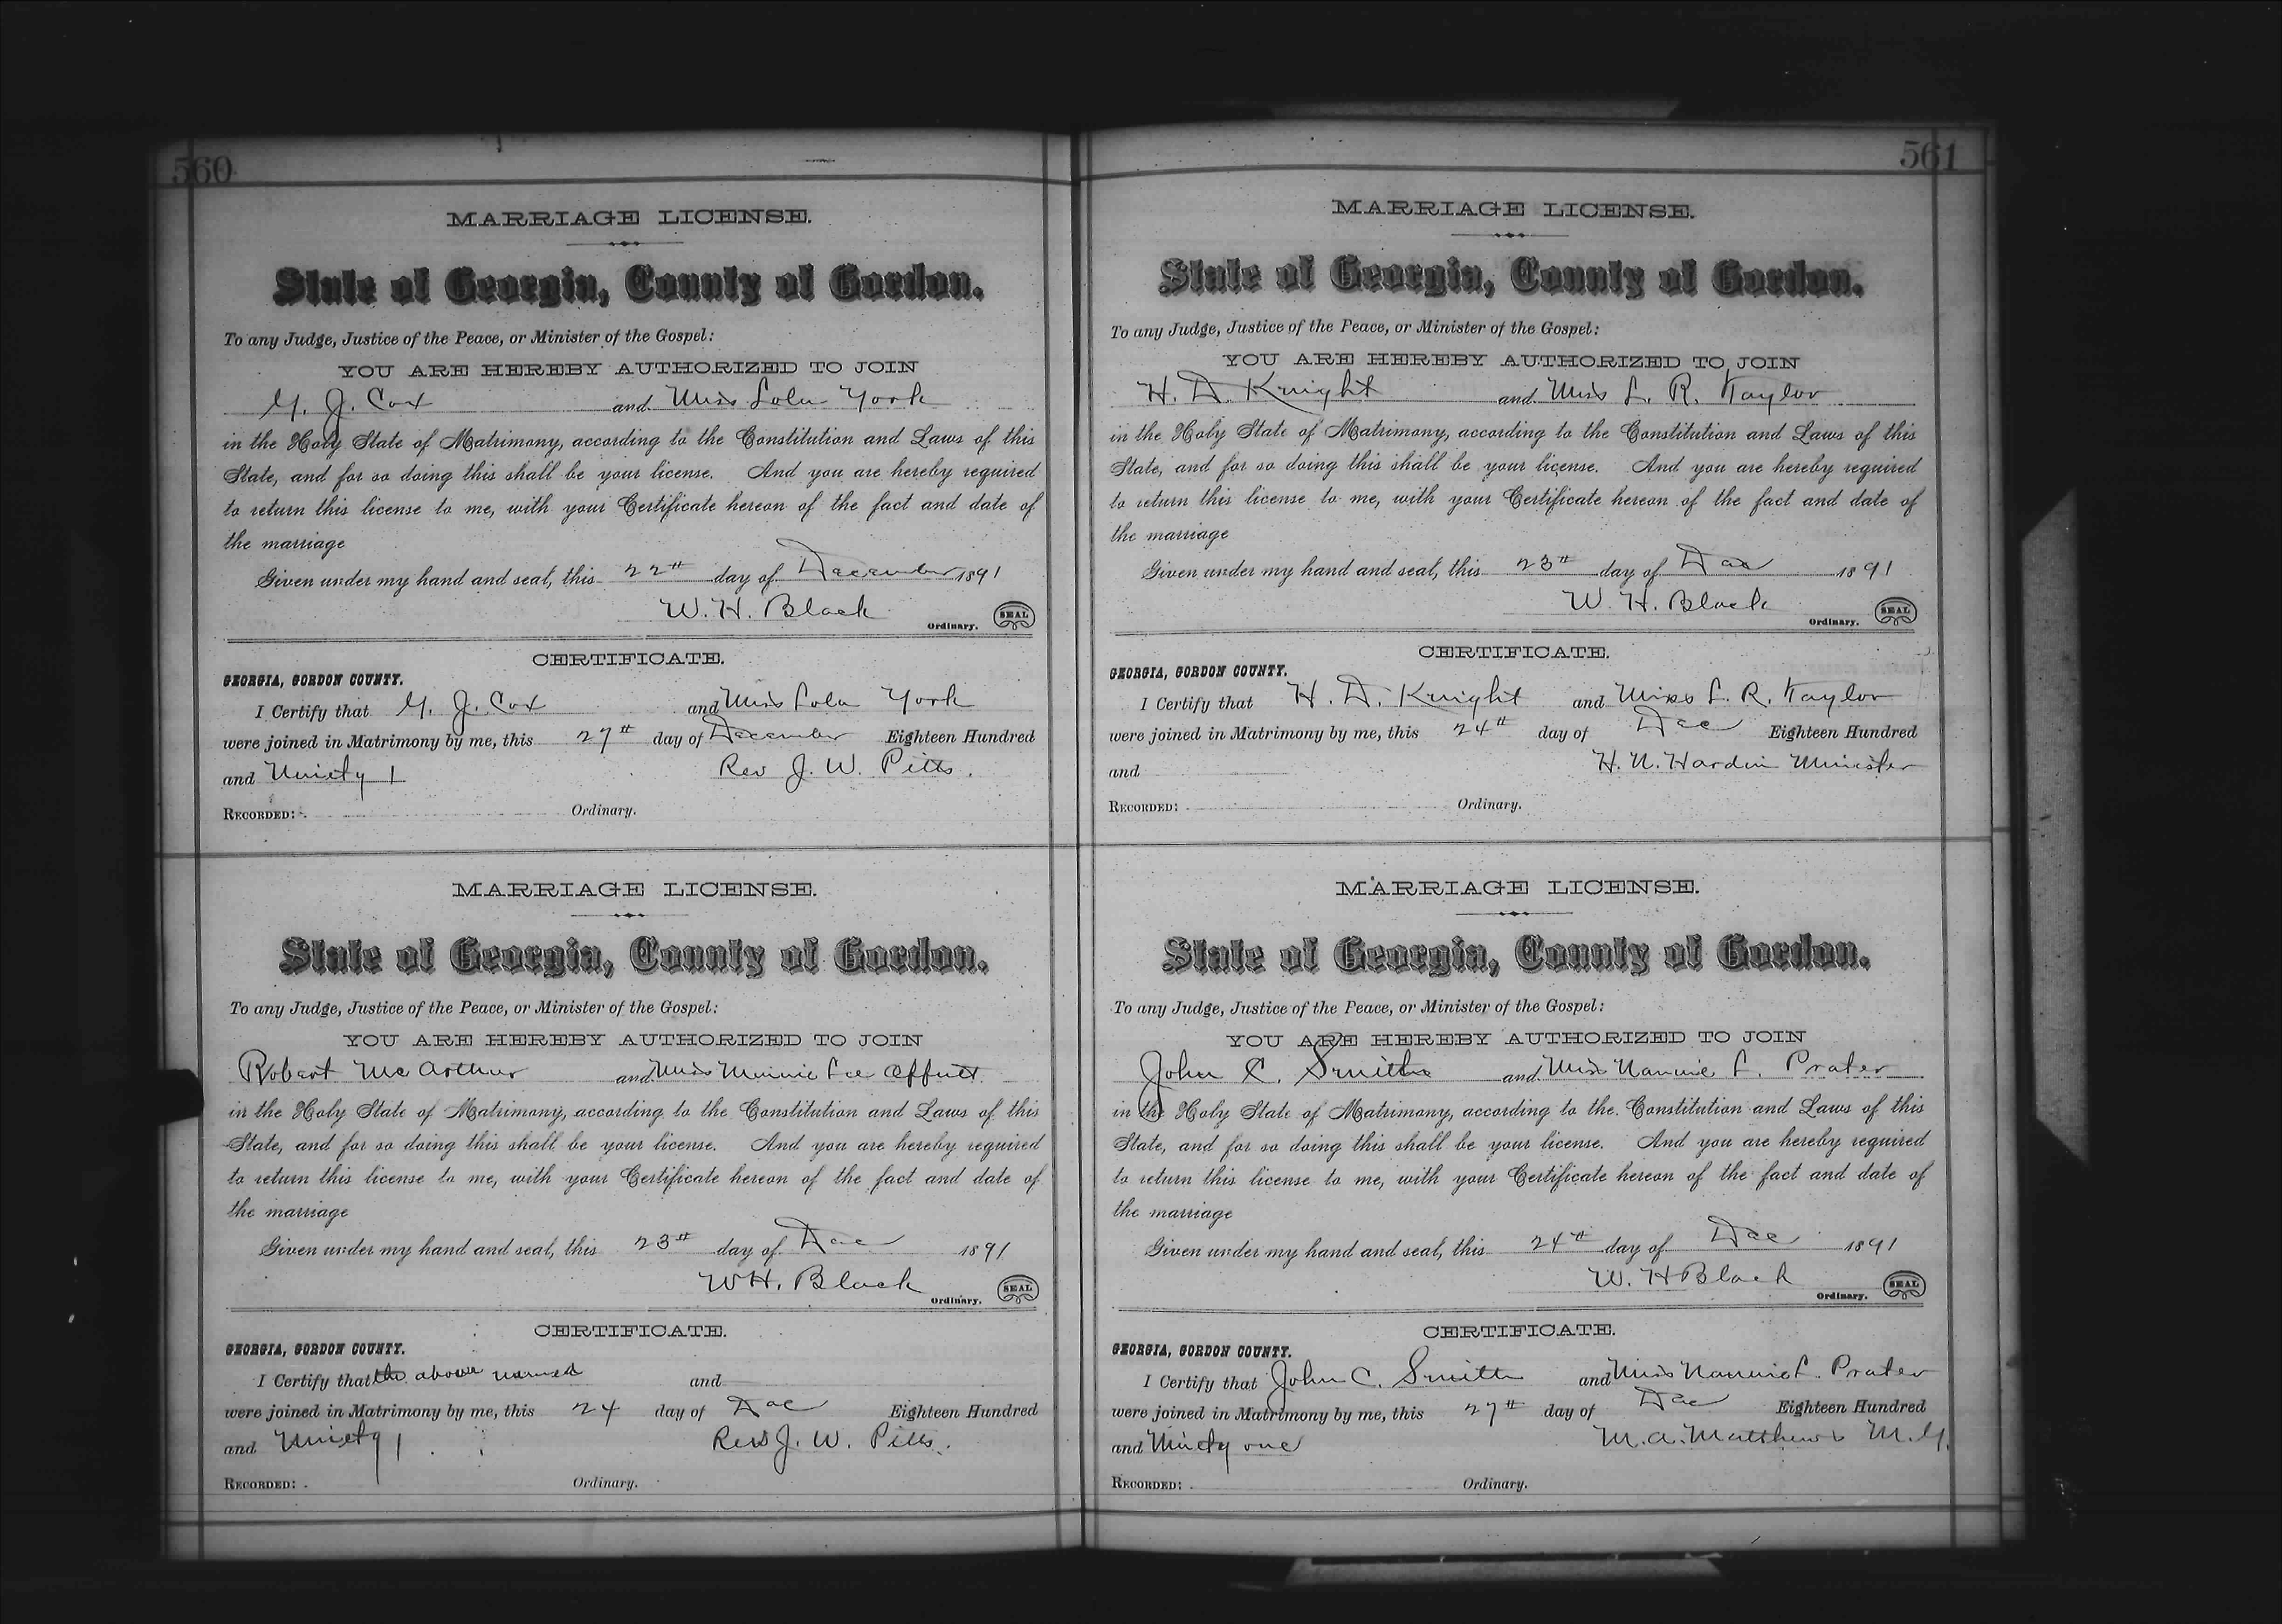 560
MARRIAGE LICENSE.
State of Georgia, County of Gordon.
To any Judge, Justice of the Peace, or Minister of the Gospel:
YOU ARE HEREBY AUTHORIZED TO JOIN
G. J. Cox and Miss Lola York
in the Holy State of Matrimony, according to the Constitution and Laws of this
State, and for so doing this shall be your license. And you are hereby required
to return this license to me, with your Certificate hereon of the fact and date of
the marriage
Given under my hand and seal, this 22th day of December 1891
W. H. Black
Ordinary. SEAL
CERTIFICATE.
GEORGIA, GORDON COUNTY.
I Certify that G. J. Cox and Miss Lola York
were joined in Matrimony by me, this 27th day of December Eighteen Hundred
and Ninety 1 Rev J. W. Pitts.
RECORDED: Ordinary.
MARRIAGE LICENSE.
State of Georgia, County of Gordon.
To any Judge, Justice of the Peace, or Minister of the Gospel:
YOU ARE HEREBY AUTHORIZED TO JOIN
Robert McArthur and Miss Minnie Lee Offutt
in the Holy State of Matrimony, according to the Constitution and Laws of this
State, and for so doing this shall be your license. And you are hereby required
to return this license to me, with your Certificate hereon of the fact and date of
the marriage
Given under my hand and seal, this 23th day of Dec 1891
W H. Black
Ordinary. SEAL
CERTIFICATE.
GEORGIA, GORDON COUNTY.
I Certify that the above named and
were joined in Matrimony by me, this 24 day of Dec Eighteen Hundred
and Ninety 1 Rev J. W. Pitts.
RECORDED: Ordinary.
561
MARRIAGE LICENSE.
State of Georgia, County of Gordon.
To any Judge, Justice of the Peace, or Minister of the Gospel:
YOU ARE HEREBY AUTHORIZED TO JOIN
H. D. Knight and Miss L. R. Taylor
in the Holy State of Matrimony, according to the Constitution and Laws of this
State, and for so doing this shall be your license. And you are hereby required
to return this license to me, with your Certificate hereon of the fact and date of
the marriage
Given under my hand and seal, this 23th day of Dec 1891
W. H. Black
Ordinary. SEAL
CERTIFICATE.
GEORGIA, GORDON COUNTY.
I Certify that H. D. Knight and Miss L. R. Taylor
were joined in Matrimony by me, this 24th day of Dec Eighteen Hundred
and H. N. Hardin Minister
RECORDED: Ordinary.
MARRIAGE LICENSE.
State of Georgia, County of Gordon.
To any Judge, Justice of the Peace, or Minister of the Gospel:
YOU ARE HEREBY AUTHORIZED TO JOIN
John C. Smith and Miss Nannie L. Prater
in the Holy State of Matrimony, according to the Constitution and Laws of this
State, and for so doing this shall be your license. And you are hereby required
to return this license to me, with your Certificate hereon of the fact and date of
the marriage
Given under my hand and seal, this 24th day of Dec 1891
W. H Black
Ordinary. SEAL
CERTIFICATE.
GEORGIA, GORDON COUNTY.
I Certify that John C. Smith and Miss Nannie L. Prater
were joined in Matrimony by me, this 27th day of Dec Eighteen Hundred
and Ninety one M. A. Matthews M. G.
RECORDED: Ordinary.